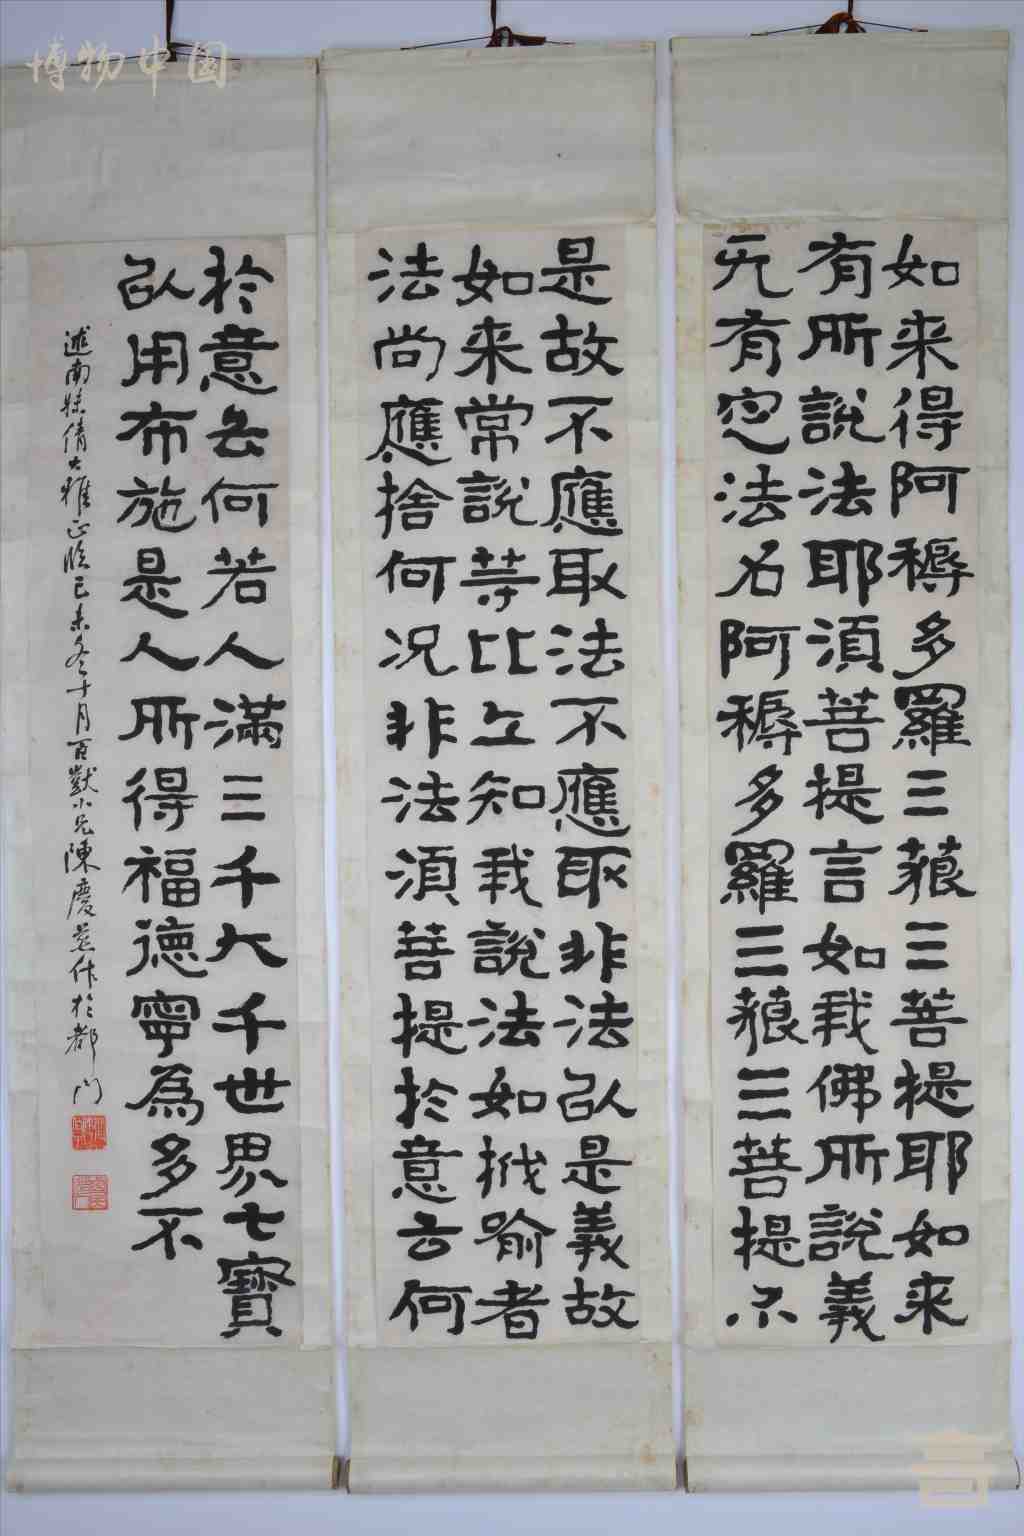 博物中国
如来得阿耨多羅三藐三菩提耶如来
有所說法耶須菩提言如我佛所說義
无有定法名阿耨多羅三藐三菩提
是故不應取法不應取非法以是義故
如来常說等比丘知我說法如栰喻者
法尚應捨何况非法須菩提於意云何
於意云何若人滿三千大千世界七寶
以用布施是人所得福德寧為多不
南妹倩大雅正臨己未冬十月百獸小兄陳慶作於都門